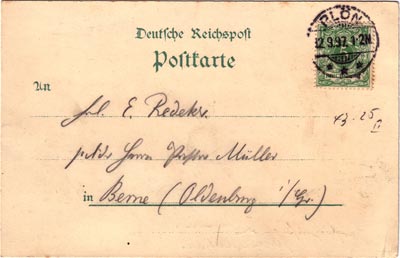 Deutsche Reichspost
Postkarte
PLÖN
12.9.97. 1-2N
An
Frl. E. Redeker.
Herrn Pastor Müller
in Berne (Oldenburg i/Gr.)